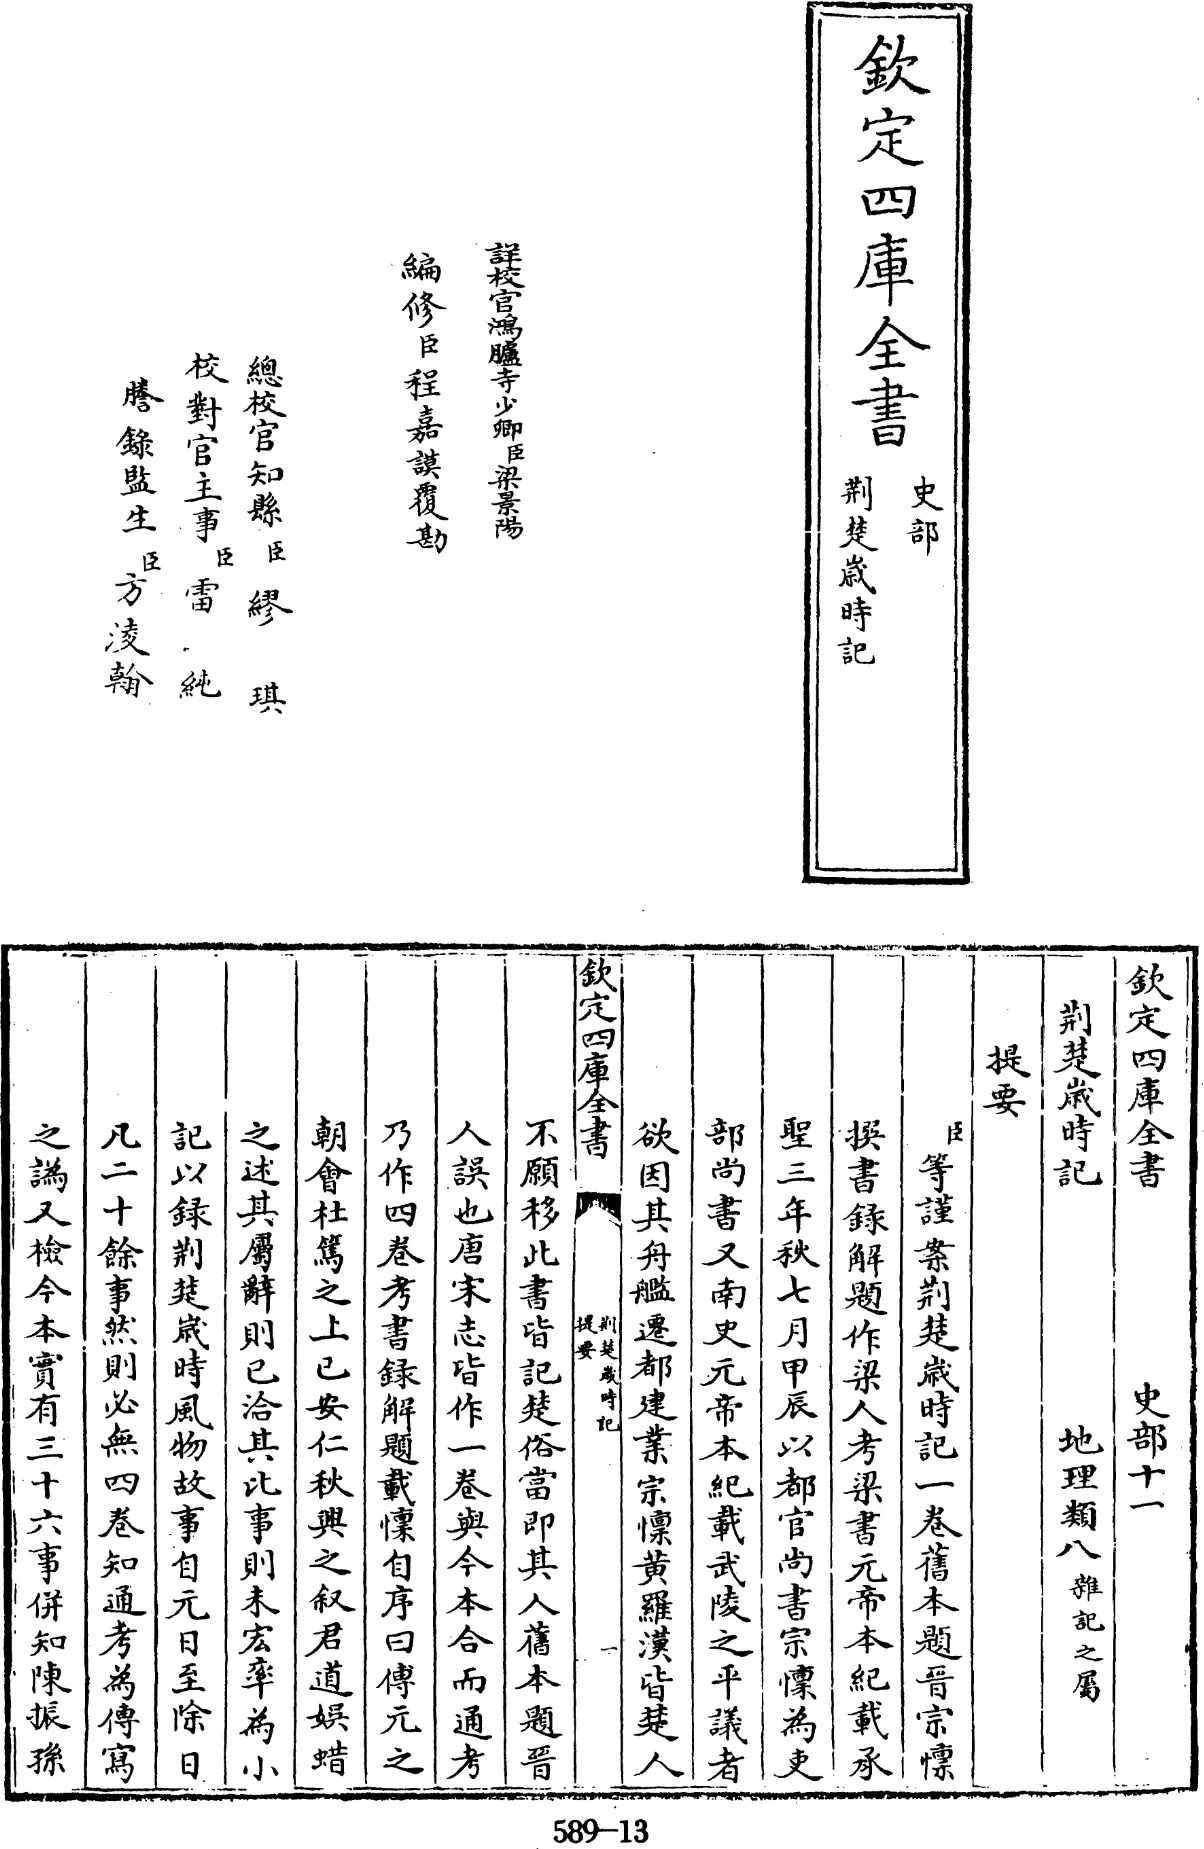 欽定四庫全書
史部
荆楚歲時記
詳校官鴻臚寺少卿臣梁景陽
編修臣程嘉謨覆勘
總校官知縣臣繆琪
校對官主事臣雷純
謄錄監生臣方淩翰
欽定四庫全書 史部十一
荆楚歲時記 地理類八雜記之屬
提要
臣等謹案荆楚歲時記一卷舊本題晋宗懍
撰書錄解題作梁人考梁書元帝本紀載承
聖三年秋七月甲辰以都官尚書宗懍為吏
部尚書又南史元帝本紀載武陵之平議者
欲因其舟艦遷都建業宗懍黄羅漢皆楚人
欽定四庫全書
荆楚歲時記
提要
一
不願移此書皆記楚俗當即其人舊本題晋
人誤也唐宋志皆作一卷與今本合而通考
乃作四卷考書錄解題載懍自序曰傅元之
朝會杜篤之上巳安仁秋興之叙君道娛蜡
之述其屬辭則已洽其比事則未宏率為小
記以錄荆楚歲時風物故事自元日至除日
凡二十餘事然則必無四卷知通考為傳寫
之譌又檢今本實有三十六事併知陳振孫
589-13